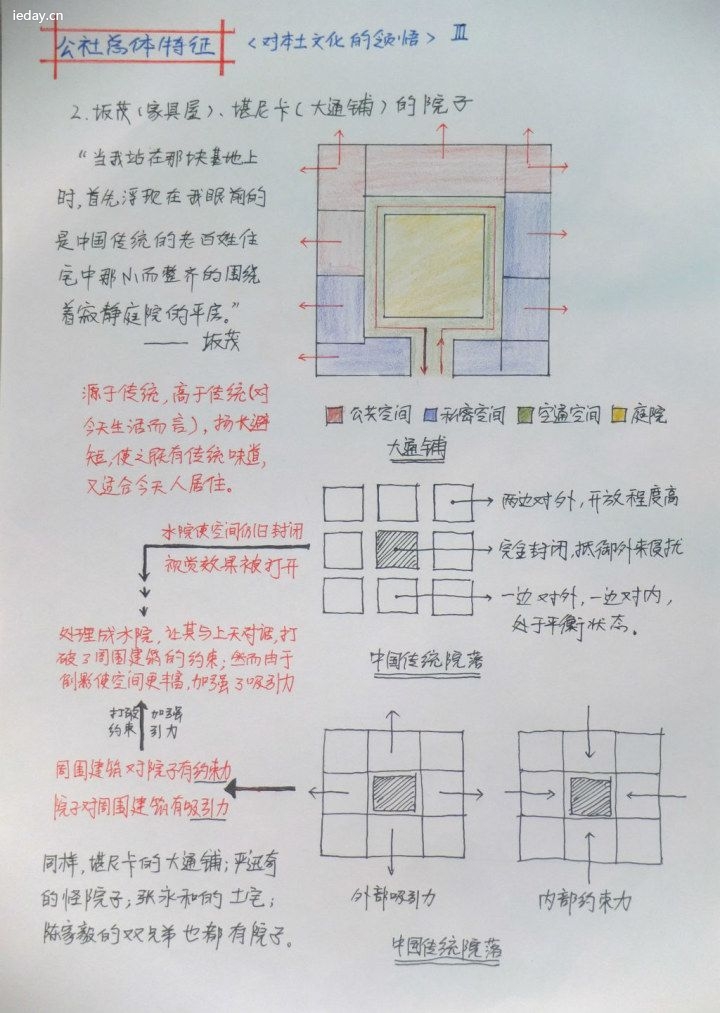 ieday.cn
公社总体特征 <对本土文化的领悟> Ⅲ
2. 坂茂(家具屋)、堪尼卡(大通铺)的院子
“当我站在那块基地上
时,首先浮现在我眼前的
是中国传统的老百姓住
宅中那小而整齐的围绕
着寂静庭院的平房。”
—— 坂茂
公共空间 私密空间 交通空间 庭院
大通铺
源于传统,高于传统(对
今天生活而言),扬长避
短,使之既有传统味道,
又适合今天人居住。
两边对外,开放程度高
完全封闭,抵御外来侵扰
一边对外,一边对内,
处于平衡状态。
中国传统院落
水院使空间仍旧封闭
视觉效果被打开
处理成水院,让其与上天对话,打
破了周围建筑的约束;然而由于
倒影使空间更丰富,加强了吸引力
打破
约束
加强
引力
周围建筑对院子有约束力
院子对周围建筑有吸引力
外部吸引力
内部约束力
中国传统院落
同样,堪尼卡的大通铺;严迅奇
的怪院子;张永和的土宅;
陈家毅的双兄弟也都有院子。